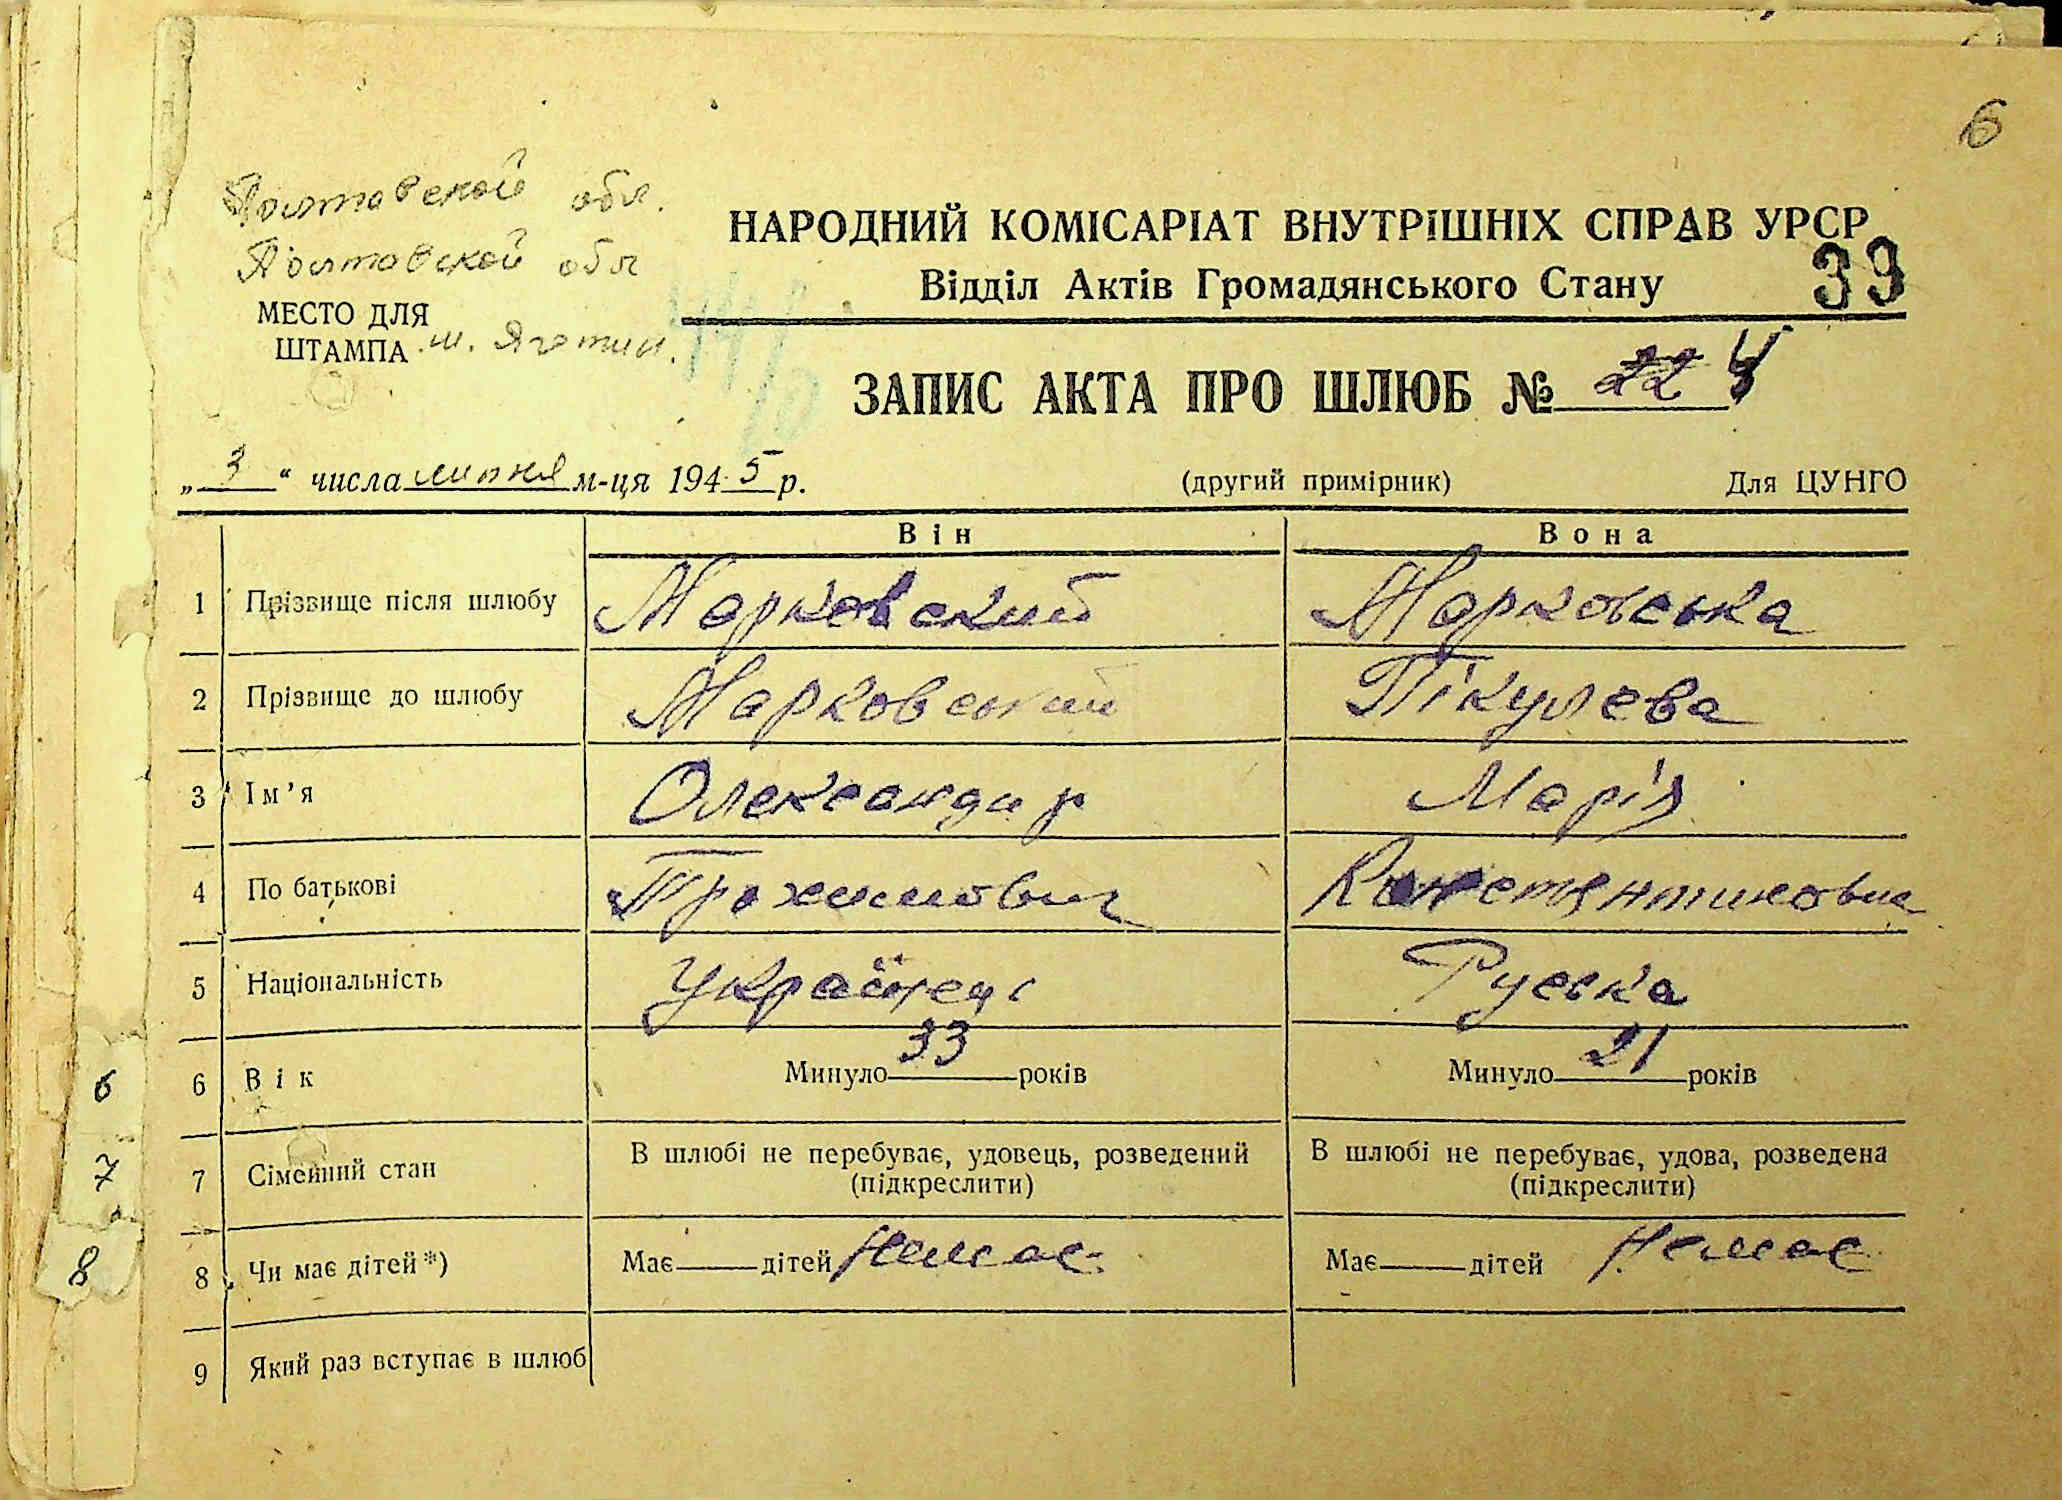 6
Полтавской обл.
Полтавской обл
МЕСТО ДЛЯ
ШТАМПА м. Яготин.
НАРОДНИЙ КОМІСАРІАТ ВНУТРІШНІХ СПРАВ УРСР
Відділ Актів Громадянського Стану 33
ЗАПИС АКТА ПРО ШЛЮБ № 22 4
„ 3 “ числа липня м-ця 1945 р. (другий примірник) Для ЦУНГО
Він Вона
1 Прізвище після шлюбу Марковский Марковська
2 Прізвище до шлюбу Марковський Пікулева
3 Ім’я Олександир Марія
4 По батькові Трохимович Констянтиновна
5 Національність Українець Руська
6 Вік Минуло 33 років Минуло 21 років
7 Сімейний стан В шлюбі не перебуває, удовець, розведений (підкреслити) В шлюбі не перебуває, удова, розведена (підкреслити)
8 Чи має дітей*) Має дітей Немає Має дітей Немає
9 Який раз вступає в шлюб
6
7
8